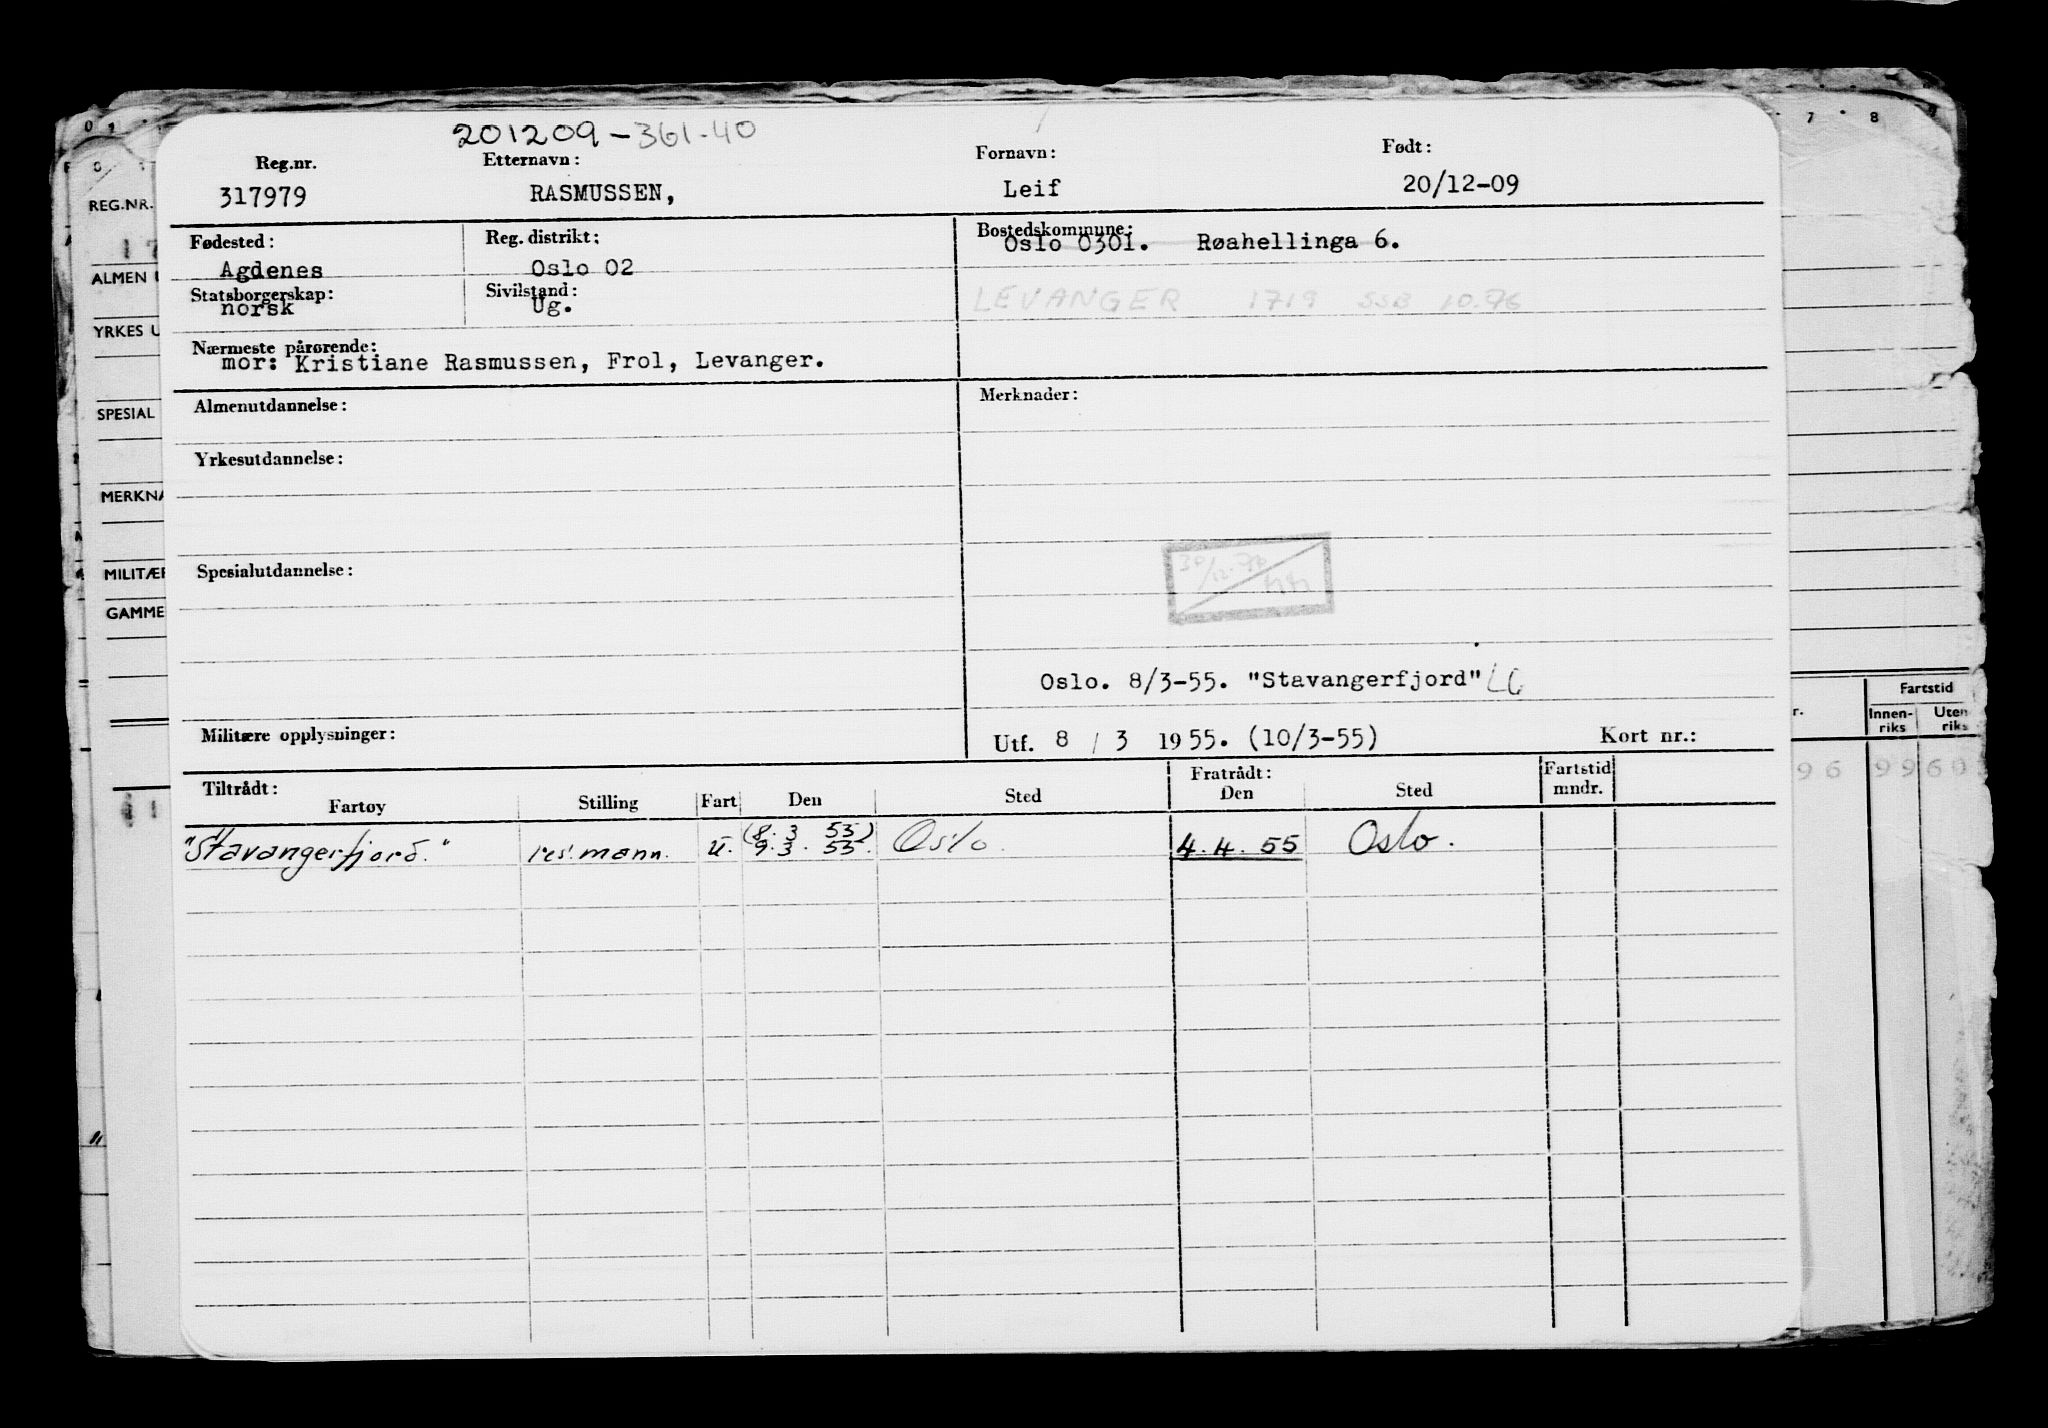 201209-361-40
Reg.nr. Etternavn: Fornavn: Født:
317979 RASMUSSEN, Leif 20/12-09
Fødested: Reg. distrikt: Bostedskommune:
Agdenes Oslo 02 Oslo 0301. Røahellinga 6.
Statsborgerskap: Sivilstand:
norsk Ug. LEVANGER 1719 SSB 10.76
Nærmeste pårørende:
mor: Kristiane Rasmussen, Frol, Levanger.
Almenutdannelse: Merknader:
Yrkesutdannelse:
Spesialutdannelse:
Oslo. 8/3-55. "Stavangerfjord"
Militære opplysninger: Utf. 8 / 3 1955. (10/3-55) Kort nr.:
Tiltrådt: Fratrådt: Fartstid
Fartøy Stilling Fart Den Sted Den Sted mndr.
(8.3 55)
"Stavangerfjord." res.mann. U. 9.3. 55. Oslo. 4.4. 55 Oslo.
REG.NR.
ALMEN
YRKES U
SPESIAL
MERKNA
MILITÆR
GAMME
7 8
Fartstid
r. Innen- Uten
riks riks
96 99 60